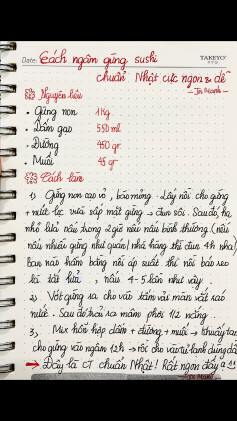 Date:
TAKEYO®
Cách ngâm gừng sushi
chuẩn Nhật cực ngon & dễ
Nguyên liệu
• Gừng non 1kg
• Dấm gạo 550 ml
• Đường 450 gr
• Muối 45 gr
Cách làm
1) Gừng non cạo vỏ, bào mỏng. Lấy nồi cho gừng
+ nước lọc vừa sấp mặt gừng → đun sôi. Sau đó, hạ
nhỏ lửa nấu trong 2 giờ nếu nấu bình thường (nếu
nấu nhiều gừng như quán nhà hàng thì đun 4h nha)
bạn nào hầm bằng nồi áp suất thì nồi báo reo
là tắt lửa, nấu 4-5 lần như vậy.
2) Vớt gừng ra cho vào tấm vải màn vắt ráo
nước. Sau đó
3, Mix hỗn hợp dấm + đường + muối → khuấy tan
cho gừng vào ngâm 12h → rồi cho vào tủ lạnh dùng dần
→ Đây là CT chuẩn Nhật! Rất ngon đấy ạ